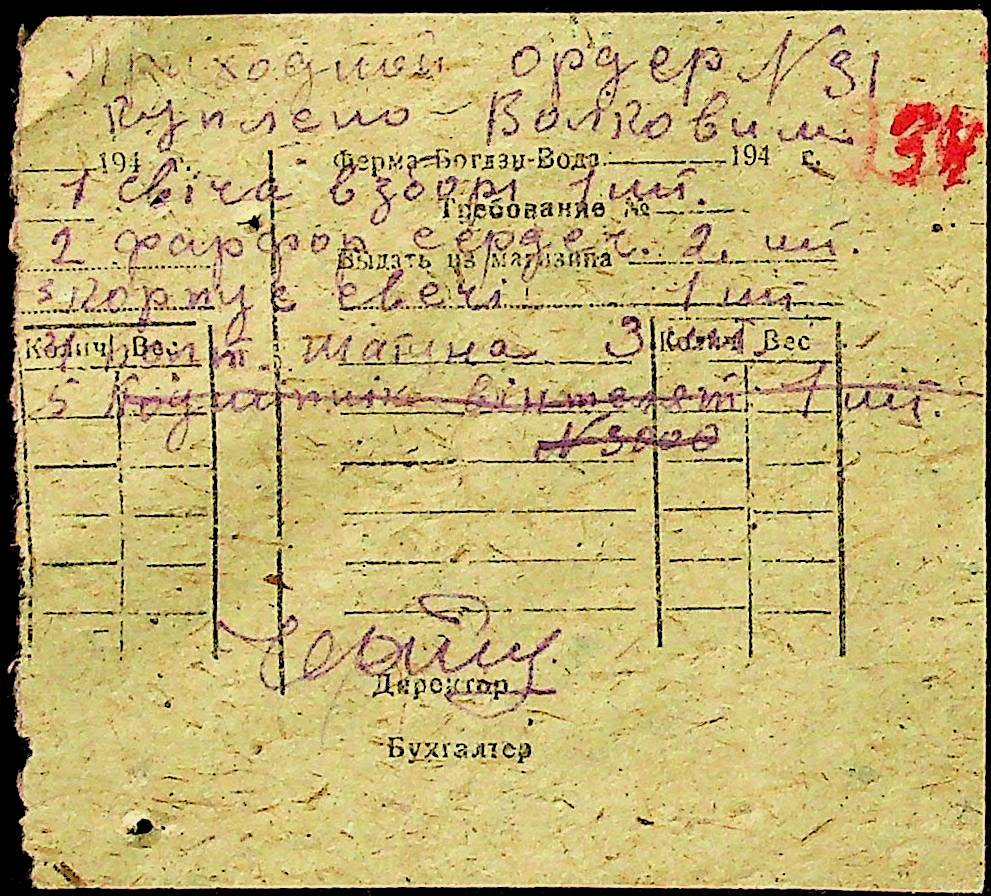 Приходный ордер N 31
Куплено - Волковим
34
194 г. Ферма Богдан-Вода 194 г.
1 свіча взборі 1 шт.
Требование №
2 фарфор сердеч. 2. шт.
Выдать из магазина
3 корпус свечі 1 шт
Колич Вес Колич Вес
4 болт. шатуна 3 шт
5 вінтелят 1 шт.
N 3000
Директор
Бухгалтер